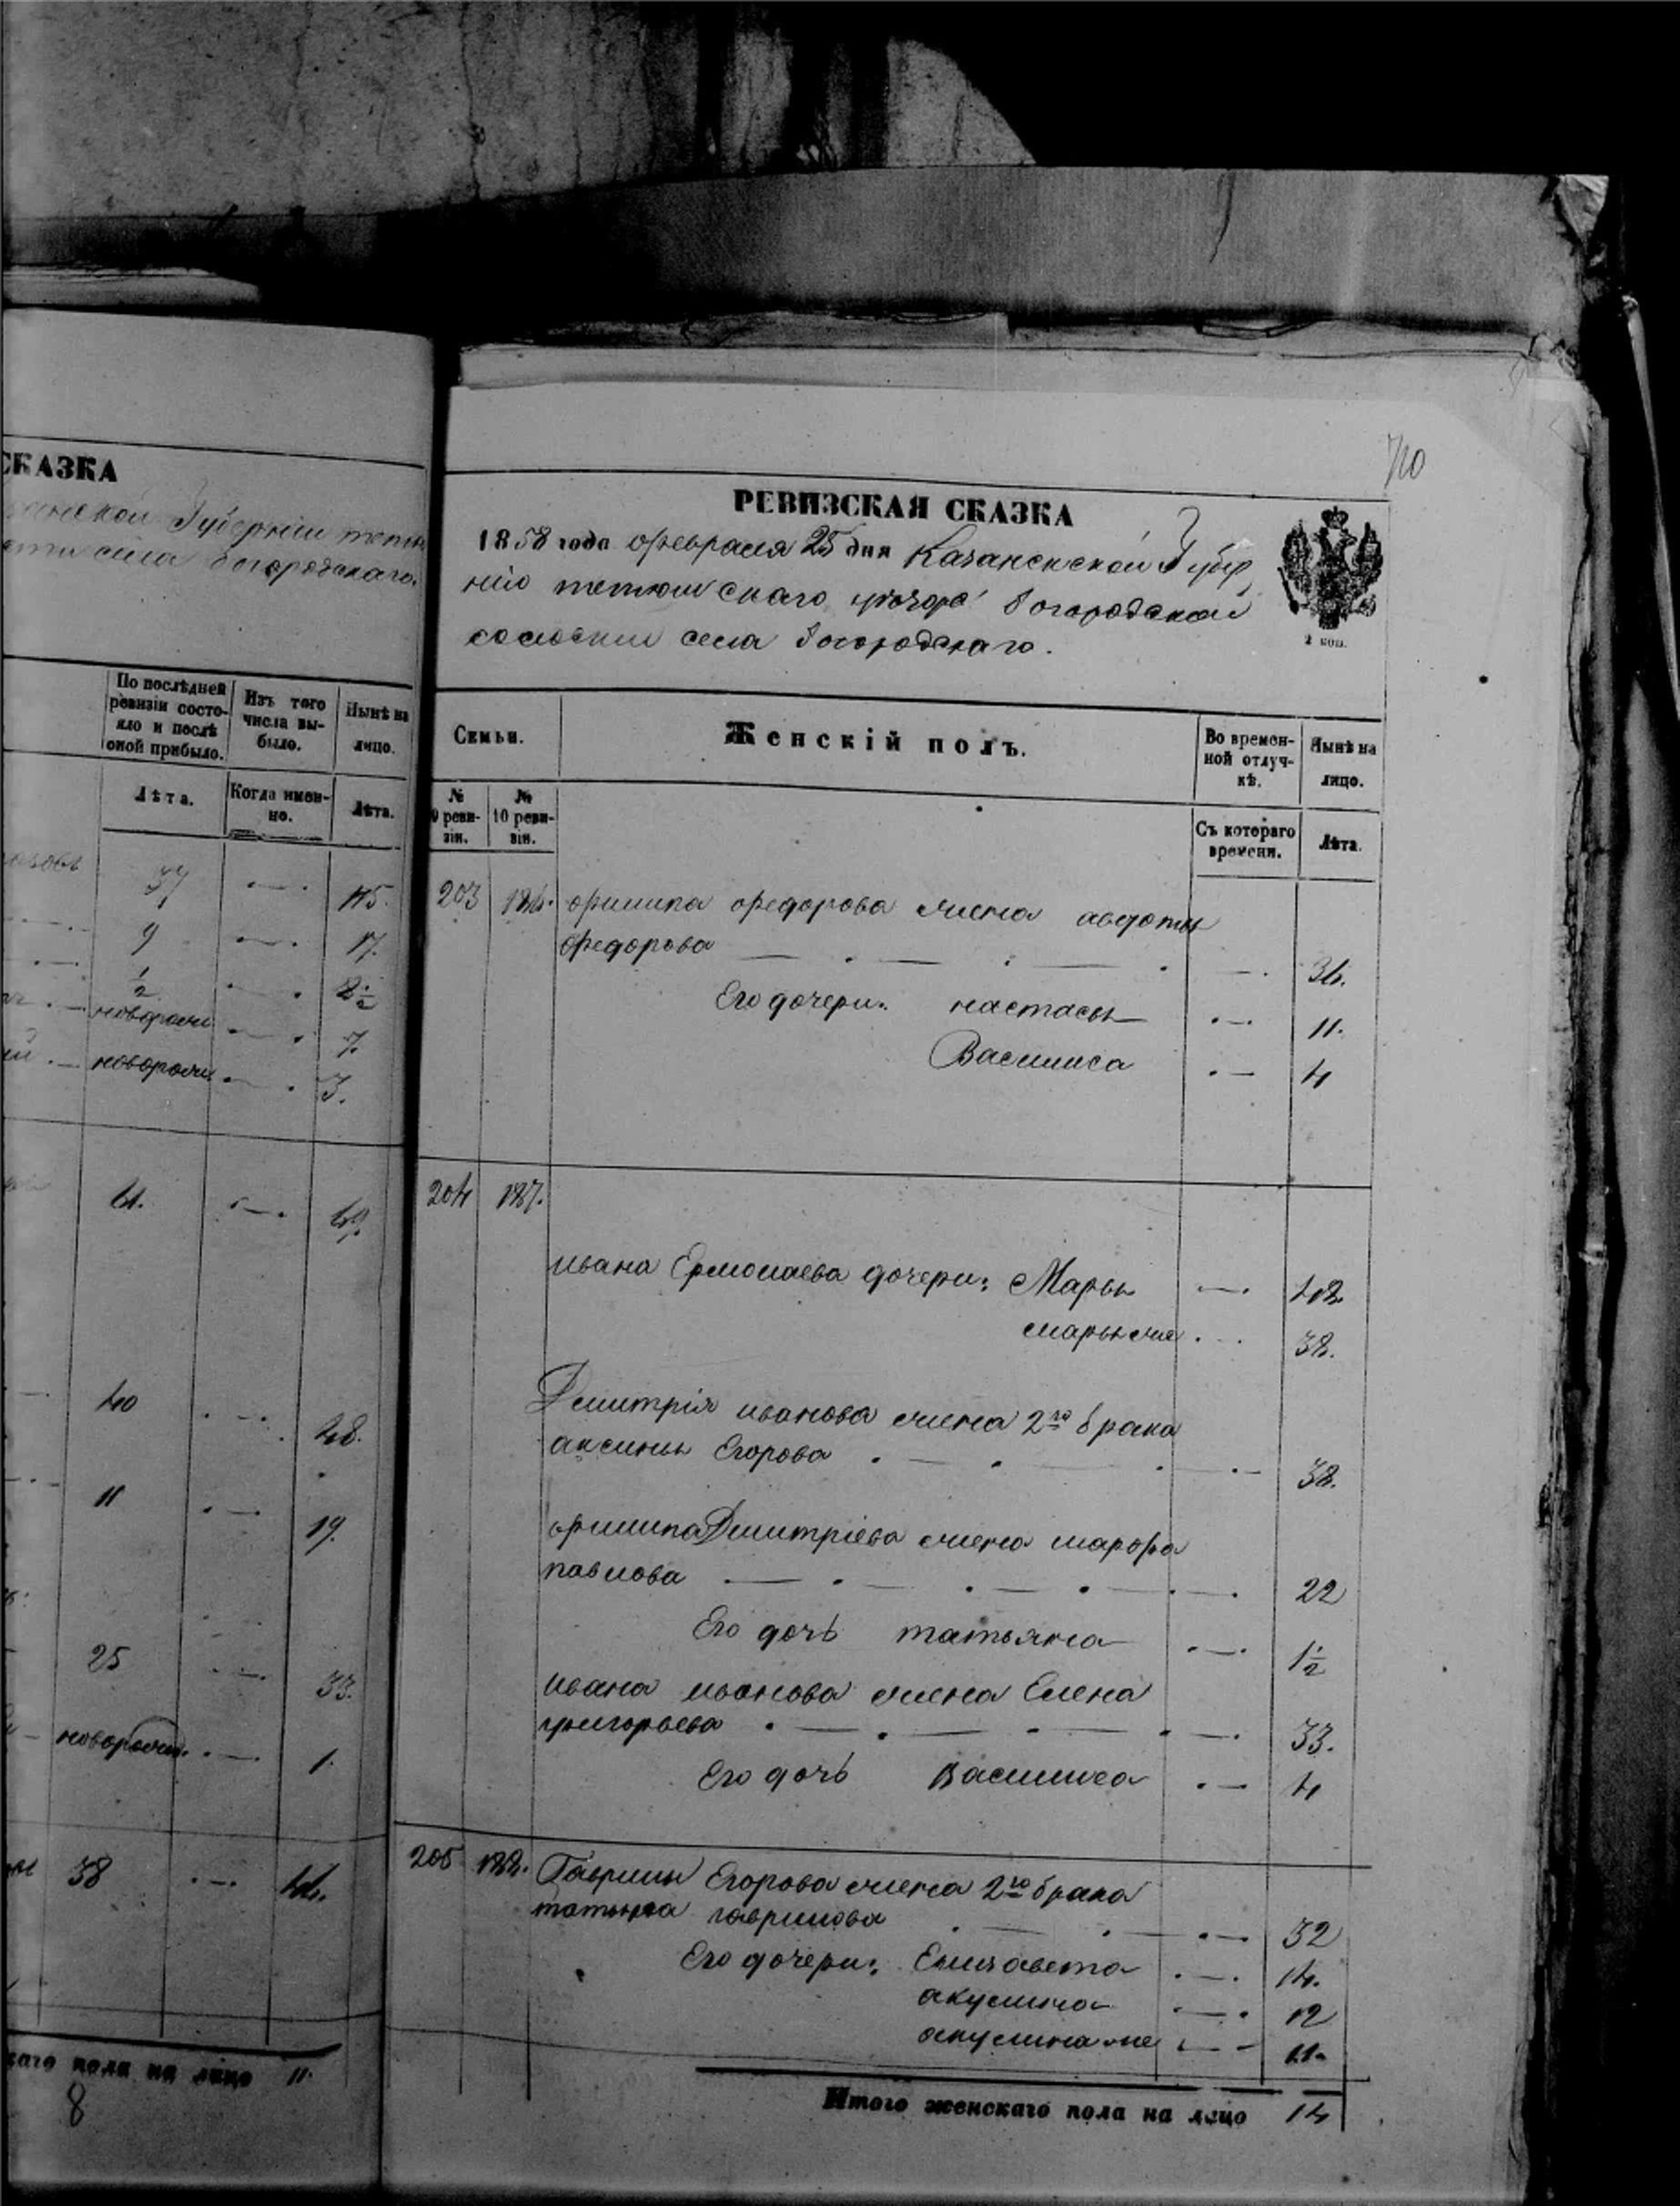 СКАЗКА
Губерніи тетю
села богородскаго.
По послѣдней ревизіи состояло и послѣ оной прибыло.
Изъ того числа выбыло.
Нынѣ на лицо.
Лѣта.
Когда именно.
Лѣта.
37 45.
9 17.
1/2 8 1/2
новорожд 7.
новорожд 3.
61. 69.
40 48.
11 19.
25 33.
новорожд. 1.
38 46.
каго пола на лицо 11.
8
РЕВИЗСКАЯ СКАЗКА
1858 года февраля 25 дня Казанскской Губер
ніи тетюшскаго уезда богородской
волости села богородскаго.
2 коп.
Семьи.
Женскій полъ.
Во временной отлучкѣ.
Нынѣ на лицо.
№ 9 ревизіи.
№ 10 ревизіи.
Съ котораго времени.
Лѣта.
203 186. филипа федорова жена авдотья
федорова 36.
Его дочери: настасья 11.
Василиса 4
204 187.
ивана Ермолаева дочери: Марья 48.
марья же 38.
Дмитрія иванова жена 2го брака
аксинья Егорова 38.
филипа Дмитріева жена марфа
павлова 22
Его дочь татьяна 1 1/2
ивана иванова жена Елена
григорьева 33.
Его дочь Василиса 4
205 188. Гаврилы Егорова жена 2го брака
татьяна гаврилова 32
Его дочери: Елизавета 14.
акулина 12
акулина же 11.
Итого женскаго пола на лицо 14